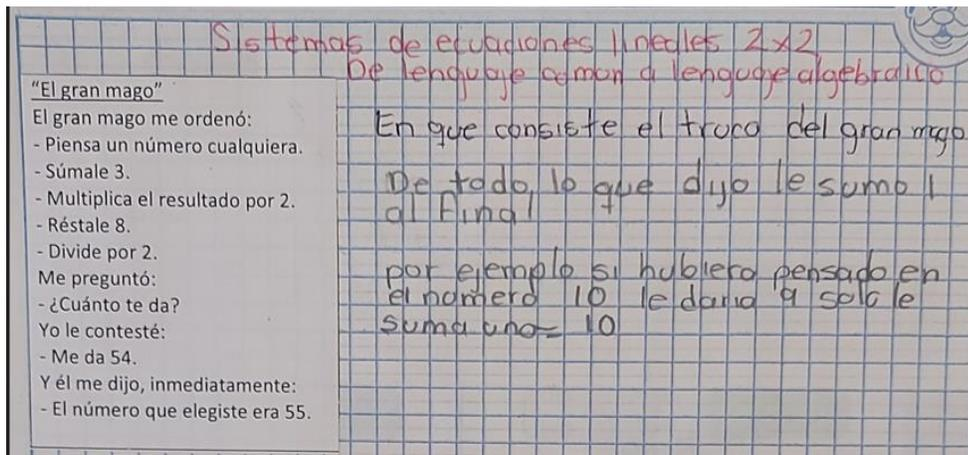 Sistemas de ecuaciones lineales 2x2
De lenguaje comun a lenguaje algebraico
“El gran mago”
El gran mago me ordenó:
- Piensa un número cualquiera.
- Súmale 3.
- Multiplica el resultado por 2.
- Réstale 8.
- Divide por 2.
Me preguntó:
- ¿Cuánto te da?
Yo le contesté:
- Me da 54.
Y él me dijo, inmediatamente:
- El número que elegiste era 55.
En que consiste el truco del gran mago
De todo lo que dijo le sumo 1
al final
por ejemplo si hubiera pensado en
el numero 10 le daria 9 solo le
suma uno = 10